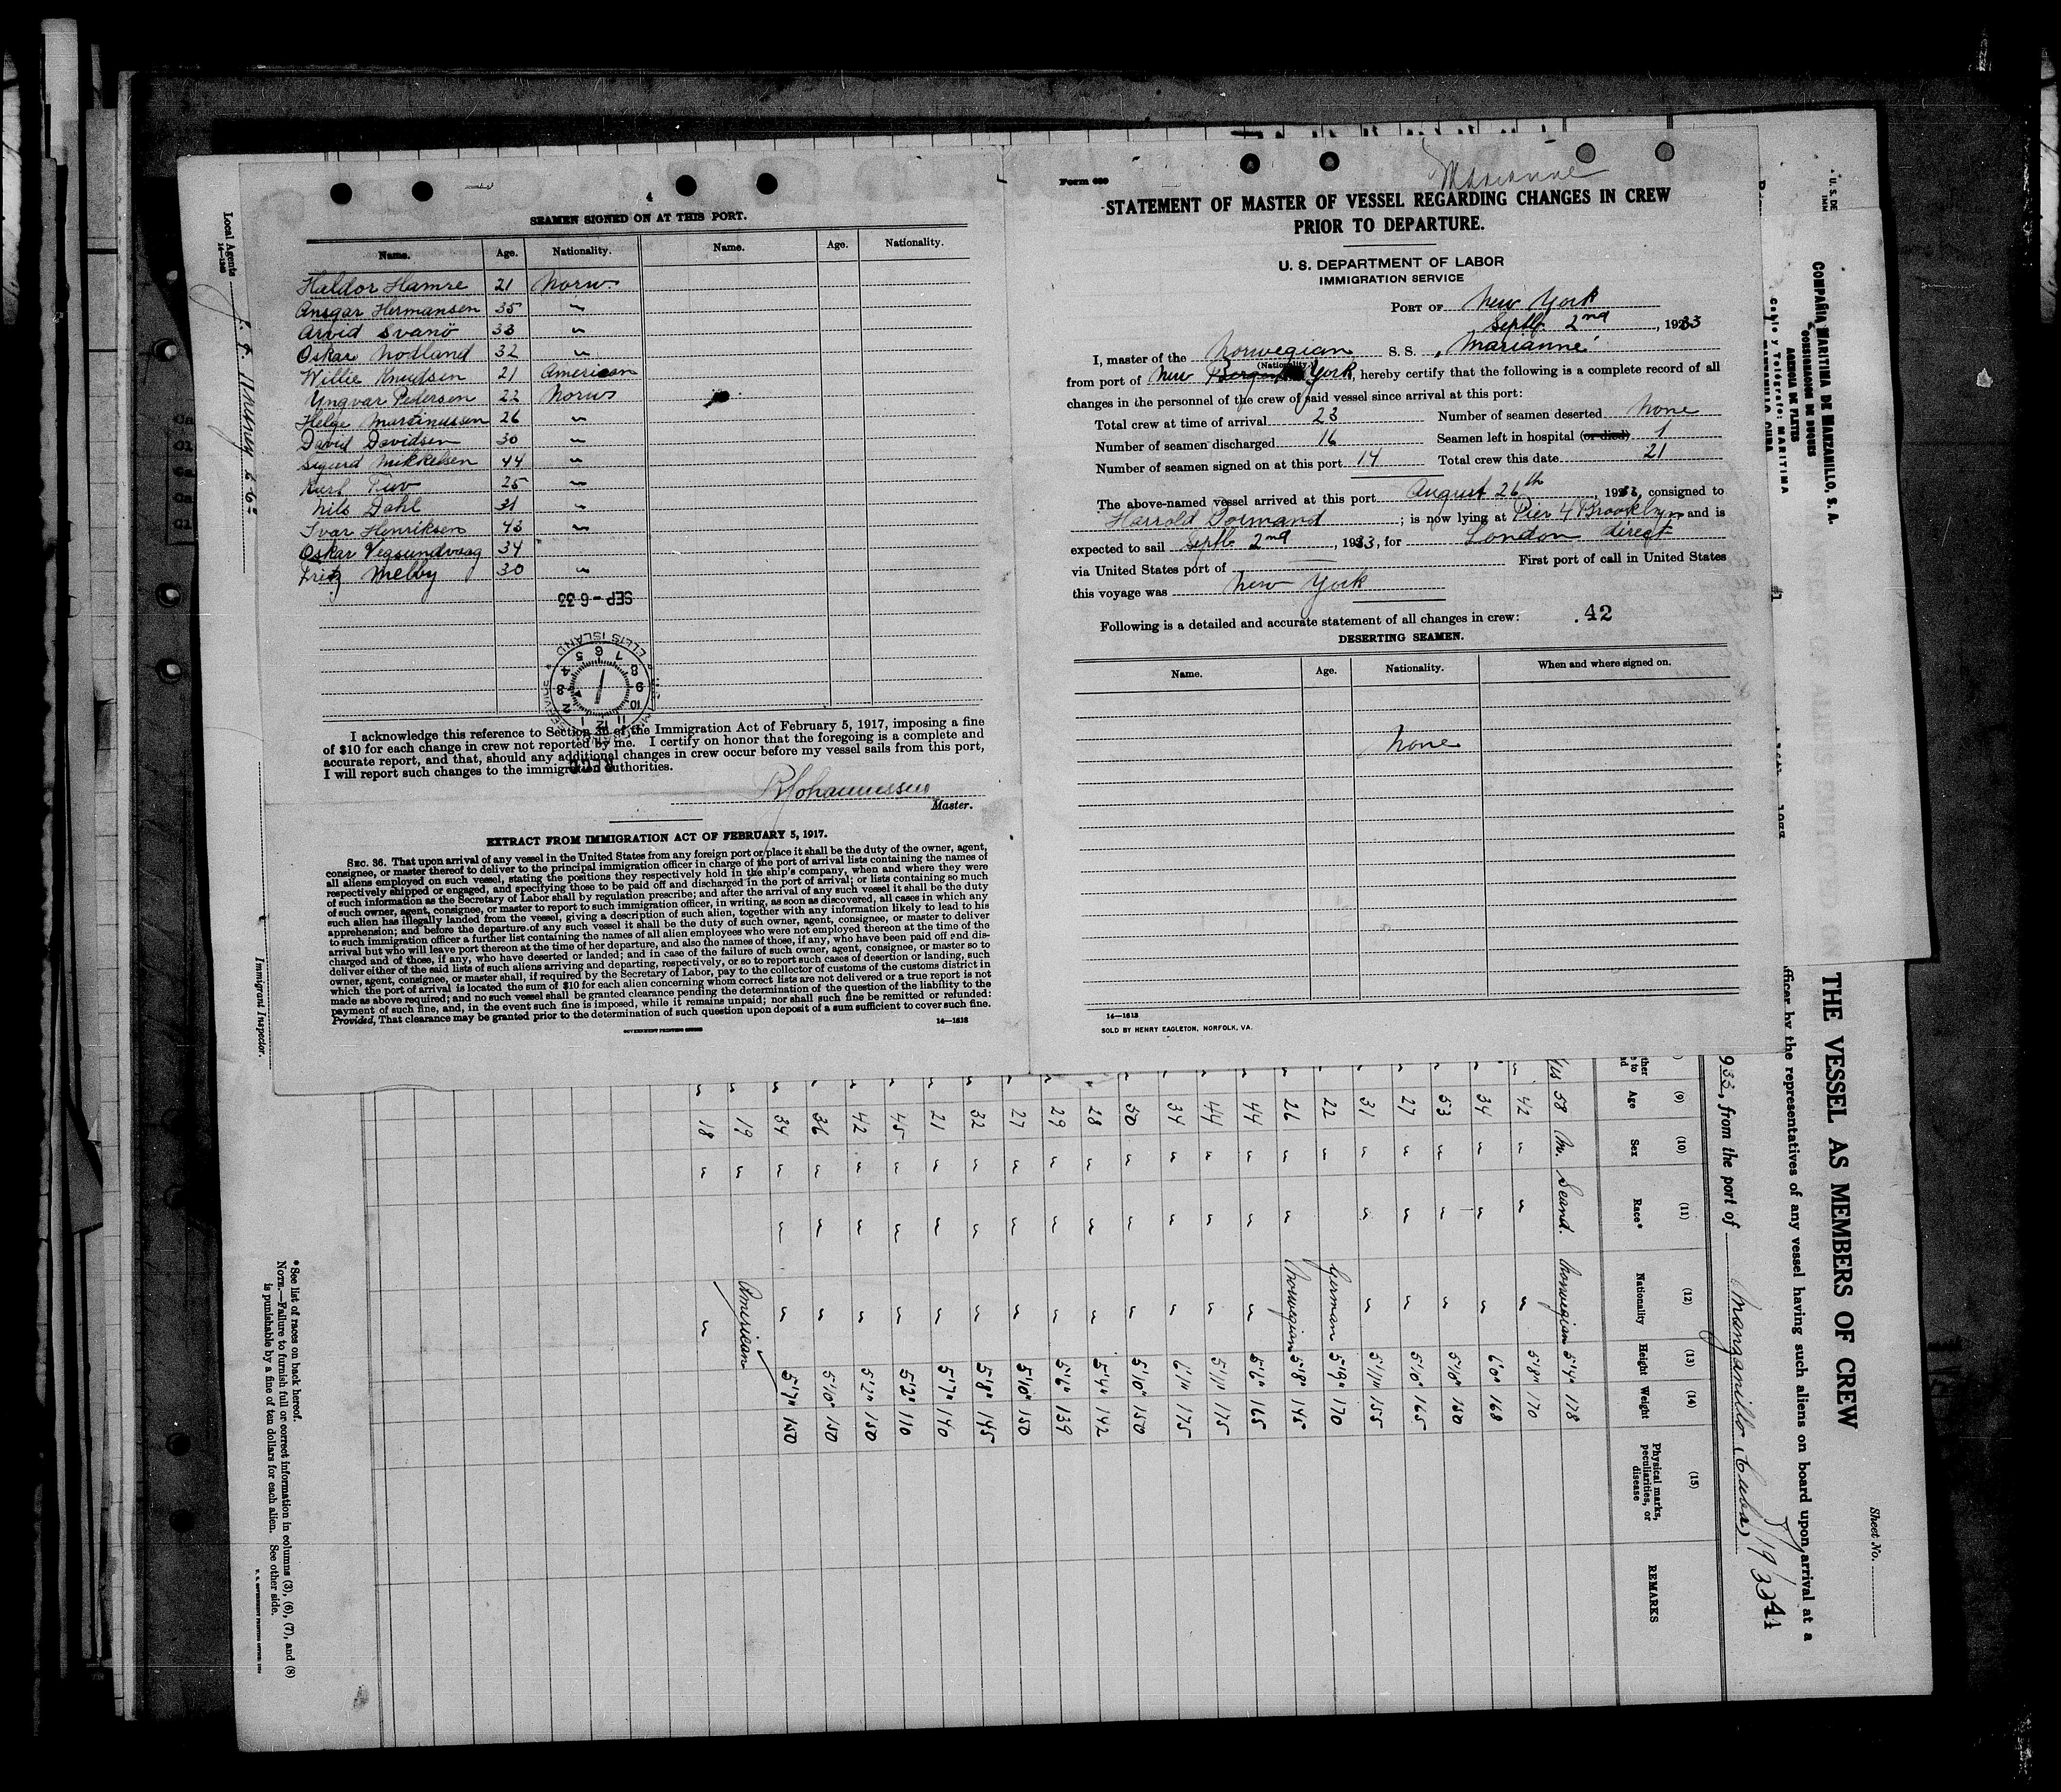 4
SEAMEN SIGNED ON AT THIS PORT.
Name. Age. Nationality. Name. Age. Nationality.
Haldor Hamre 21 Norw
Ansgar Hermansen 35 "
Arvid Svanö 33 "
Oskar Nodland 32 "
Willie Knudsen 21 American
Yngvar Pedersen 22 Norw
Helge Martinussen 26 "
David Davidsen 30 "
Sigurd Mikkelsen 44 "
Karl 25 "
Nils Dahl 31 "
Ivar Henriksen 43 "
Oskar Vegsundvaag 34 "
Fritz Melby 30 "
SEP-6 33
ELLIS ISLAND
I acknowledge this reference to Section 36 of the Immigration Act of February 5, 1917, imposing a fine
of $10 for each change in crew not reported by me. I certify on honor that the foregoing is a complete and
accurate report, and that, should any additional changes in crew occur before my vessel sails from this port,
I will report such changes to the immigration authorities.
Johannessen
Master.
EXTRACT FROM IMMIGRATION ACT OF FEBRUARY 5, 1917.
SEC. 36. That upon arrival of any vessel in the United States from any foreign port or place it shall be the duty of the owner, agent,
consignee, or master thereof to deliver to the principal immigration officer in charge of the port of arrival lists containing the names of
all aliens employed on such vessel, stating the positions they respectively hold in the ship's company, when and where they were
respectively shipped or engaged, and specifying those to be paid off and discharged in the port of arrival; or lists containing so much
of such information as the Secretary of Labor shall by regulation prescribe; and after the arrival of any such vessel it shall be the duty
of such owner, agent, consignee, or master to report to such immigration officer, in writing, as soon as discovered, all cases in which any
such alien has illegally landed from the vessel, giving a description of such alien, together with any information likely to lead to his
apprehension; and before the departure of any such vessel it shall be the duty of such owner, agent, consignee, or master to deliver
to such immigration officer a further list containing the names of all alien employees who were not employed thereon at the time of the
arrival but who will leave port thereon at the time of her departure, and also the names of those, if any, who have been paid off and dis-
charged and of those, if any, who have deserted or landed; and in case of the failure of such owner, agent, consignee, or master so to
deliver either of the said lists of such aliens arriving and departing, respectively, or so to report such cases of desertion or landing, such
owner, agent, consignee, or master shall, if required by the Secretary of Labor, pay to the collector of customs of the customs district in
which the port of arrival is located the sum of $10 for each alien concerning whom correct lists are not delivered or a true report is not
made as above required; and no such vessel shall be granted clearance pending the determination of the question of the liability to the
payment of such fine, and, in the event such fine is imposed, while it remains unpaid; nor shall such fine be remitted or refunded:
Provided, That clearance may be granted prior to the determination of such question upon deposit of a sum sufficient to cover such fine.
GOVERNMENT PRINTING OFFICE 14—1613
Form 689
Marianne
STATEMENT OF MASTER OF VESSEL REGARDING CHANGES IN CREW
PRIOR TO DEPARTURE.
U. S. DEPARTMENT OF LABOR
IMMIGRATION SERVICE
PORT OF New York
Septb. 2nd, 1933
I, master of the Norwegian S. S. "Marianne"
(Nationality.)
from port of New York, hereby certify that the following is a complete record of all
changes in the personnel of the crew of said vessel since arrival at this port:
Total crew at time of arrival 23 Number of seamen deserted None
Number of seamen discharged 16 Seamen left in hospital (or died) 1
Number of seamen signed on at this port 14 Total crew this date 21
The above-named vessel arrived at this port August 26th, 1933, consigned to
Harrold Dormand; is now lying at Pier 4 Brooklyn and is
expected to sail Septb 2nd, 1933, for London direct
via United States port of — First port of call in United States
this voyage was New York
Following is a detailed and accurate statement of all changes in crew: .42
DESERTING SEAMEN.
Name. Age. Nationality. When and where signed on.
None
14—1613
SOLD BY HENRY EAGLETON, NORFOLK, VA.
Local Agents
14—1949
Immigrant Inspector.
COMPAÑIA MARITIMA DE MANZANILLO, S. A.
CONSIGNACION DE BUQUES
AGENCIA DE FLETES
Cable y Telégrafo: MARITIMA
MANZANILLO, CUBA
Sheet No.
THE VESSEL AS MEMBERS OF CREW
officer by the representatives of any vessel having such aliens on board upon arrival at a
933, from the port of Manzanillo (Cuba) 8/19/33 41
(9) (10) (11) (12) (13) (14) (15)
Age Sex Race* Nationality Height Weight Physical marks, peculiarities, or disease REMARKS
Yes 58 M. Scand. Norwegian 5'4" 178
" 42 " " " 5'8" 170
" 34 " " " 6'0" 168
" 53 " " " 5'10" 180
" 27 " " " 5'10" 165
" 31 " " " 5'11" 155
" 22 " German 5'9" 170
" 26 " " Norwegian 5'8" 145
" 44 " " " 5'6" 165
" 44 " " " 5'11" 175
" 34 " " " 6'1" 175
" 50 " " " 5'10" 150
" 28 " " " 5'4" 142
" 29 " " " 5'6" 139
" 27 " " " 5'10" 150
" 32 " " " 5'8" 145
" 21 " " " 5'7" 140
" 45 " " " 5'2" 110
" 42 " " " 5'2" 150
" 36 " " " 5'10" 150
" 34 " " " 5'7" 150
" 19 " American
" 18 " "
* See list of races on back hereof.
NOTE.—Failure to furnish full or correct information in columns (3), (6), (7), and (8)
is punishable by a fine of ten dollars for each alien. See other side.